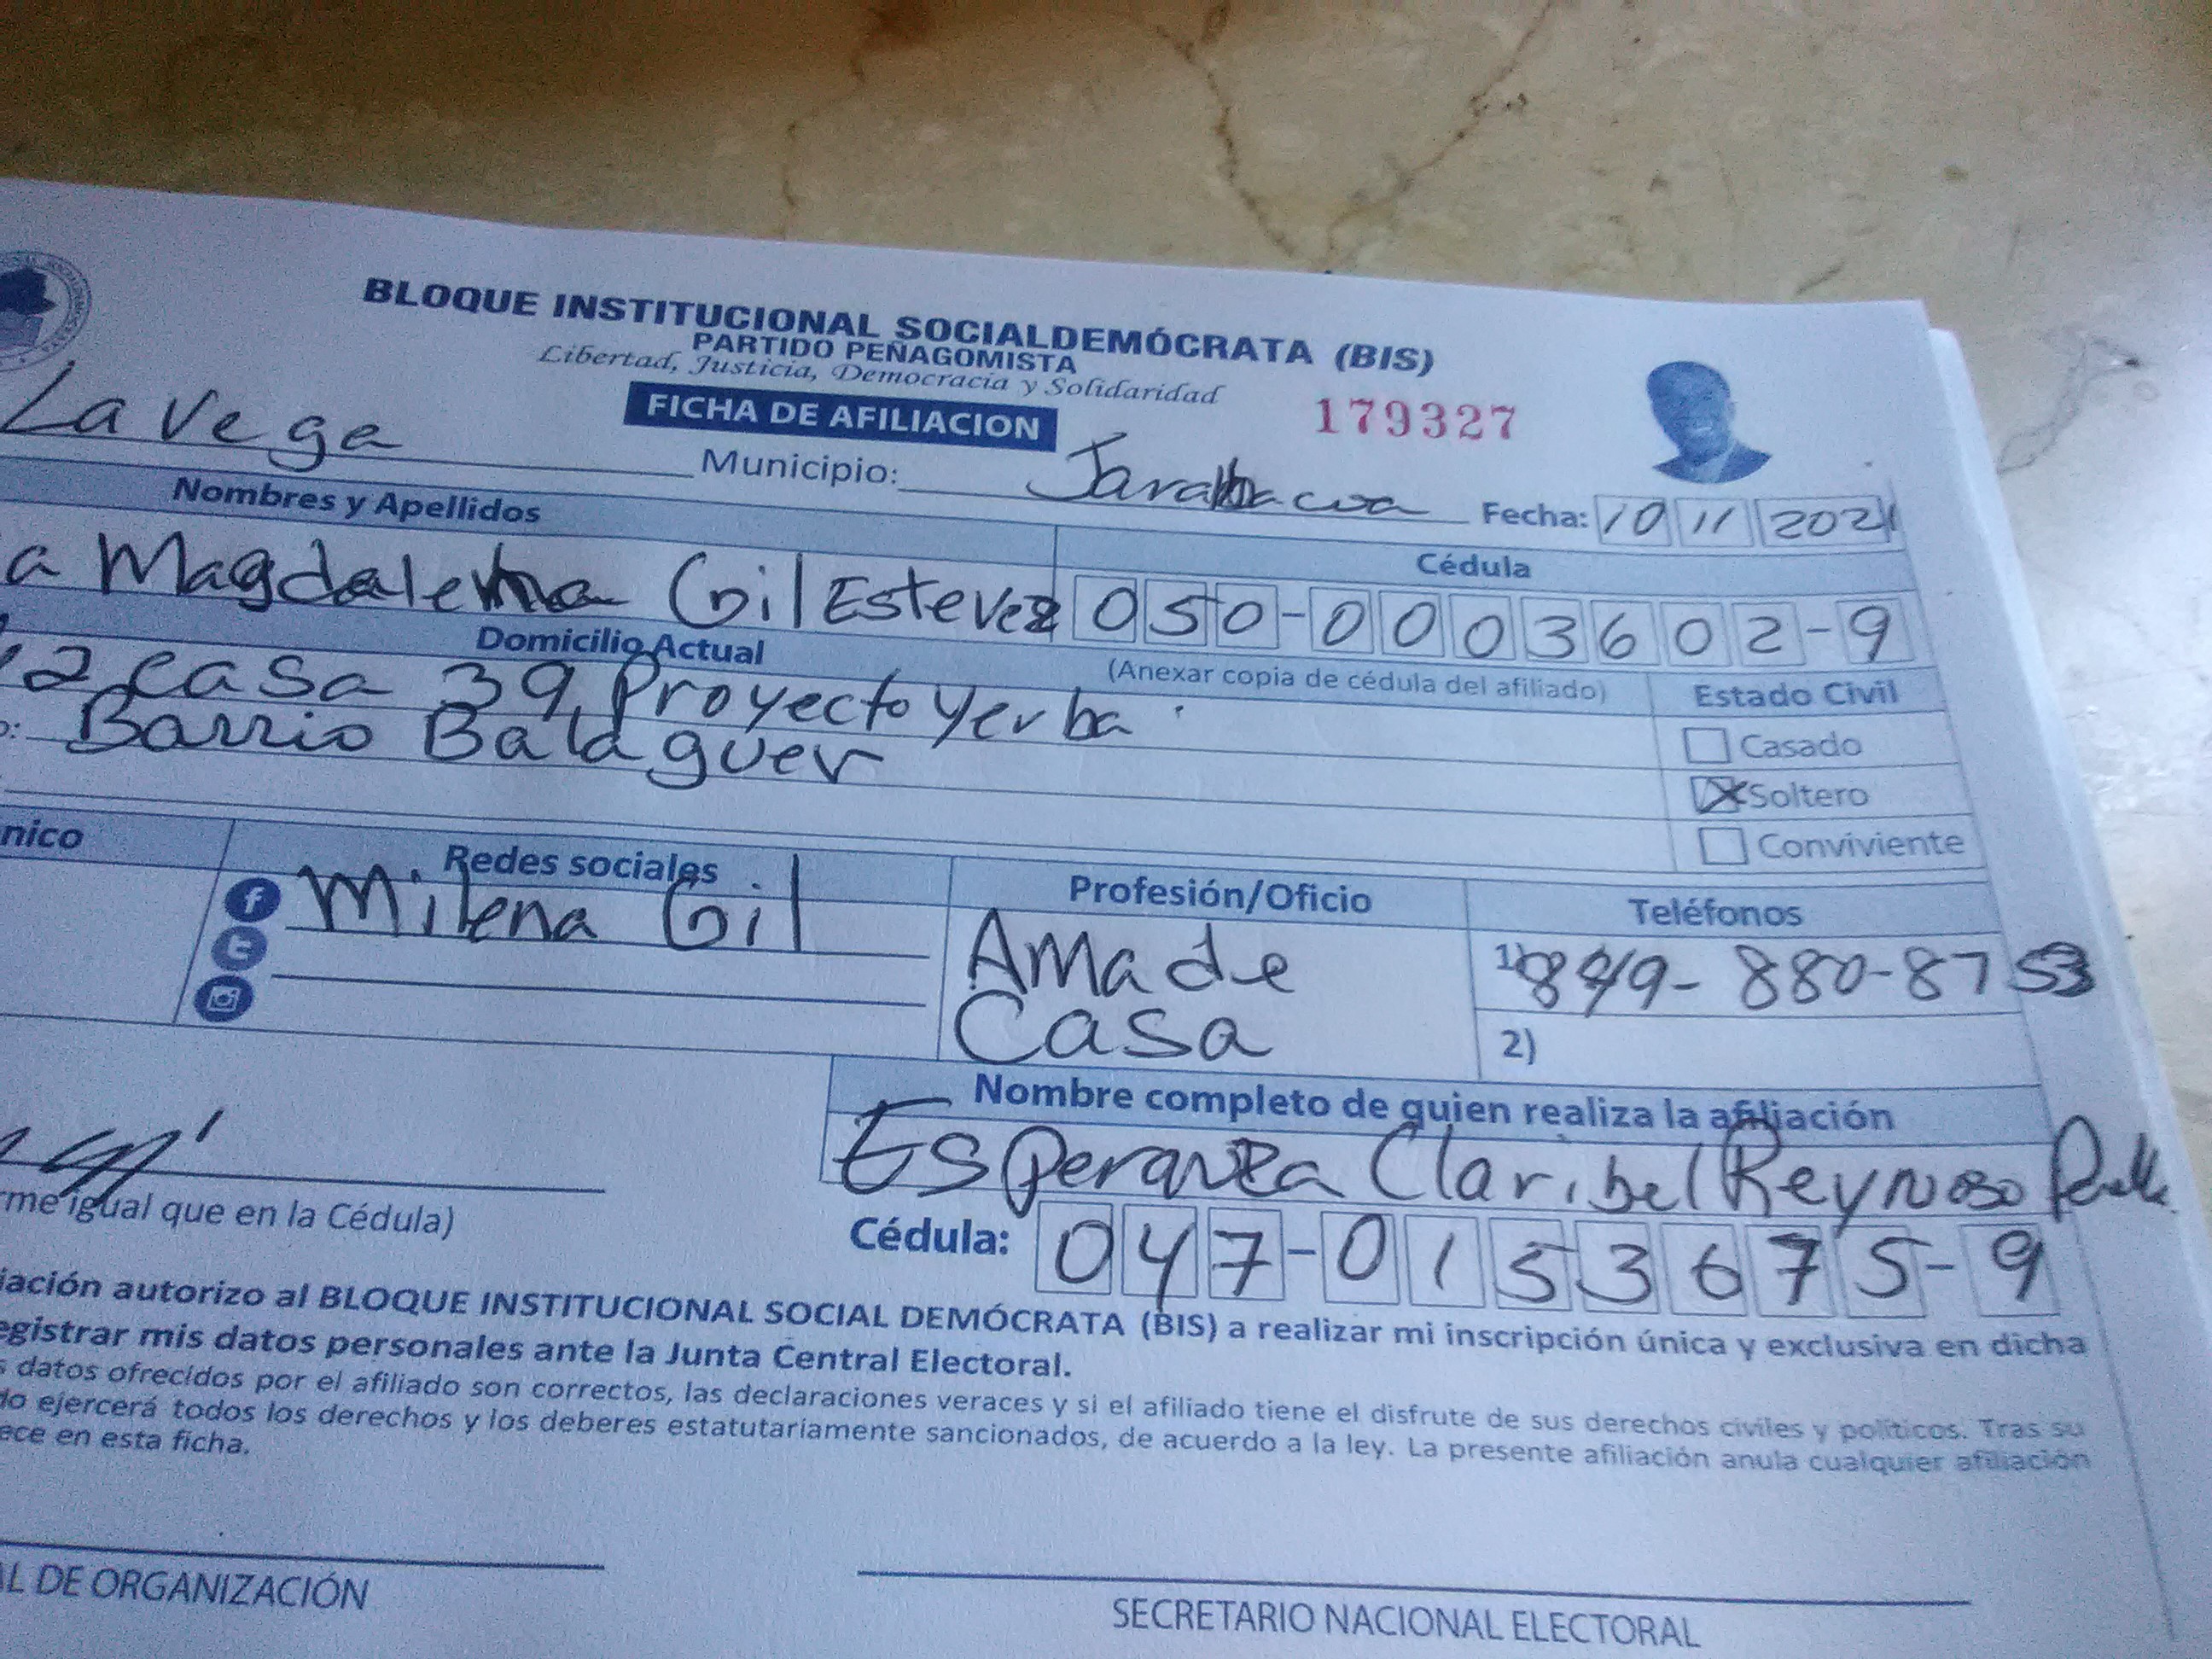 BLOQUE INSTITUCIONAL SOCIALDEMÓCRATA (BIS)
PARTIDO PEÑAGOMISTA
Libertad, Justicia, Democracia y Solidaridad
FICHA DE AFILIACION
179327
La Vega Municipio: Jarabacoa Fecha: 10 11 2021
Nombres y Apellidos Cédula
a Magdalena Gil Estevez 050-0003602-9
Domicilio Actual (Anexar copia de cédula del afiliado) Estado Civil
2 casa 39, Proyecto Yerba
Barrio Balaguer
Casado
Soltero
Conviviente
nico Redes sociales Profesión/Oficio Teléfonos
Milena Gil
Ama de
Casa
1) 849-880-8753
2)
Nombre completo de quien realiza la afiliación
Esperanza Claribel Reynoso
rme igual que en la Cédula)
Cédula: 047-0153675-9
iación autorizo al BLOQUE INSTITUCIONAL SOCIAL DEMÓCRATA (BIS) a realizar mi inscripción única y exclusiva en dicha
egistrar mis datos personales ante la Junta Central Electoral.
s datos ofrecidos por el afiliado son correctos, las declaraciones veraces y si el afiliado tiene el disfrute de sus derechos civiles y políticos. Tras su
do ejercerá todos los derechos y los deberes estatutariamente sancionados, de acuerdo a la ley. La presente afiliación anula cualquier afiliación
ece en esta ficha.
AL DE ORGANIZACIÓN
SECRETARIO NACIONAL ELECTORAL